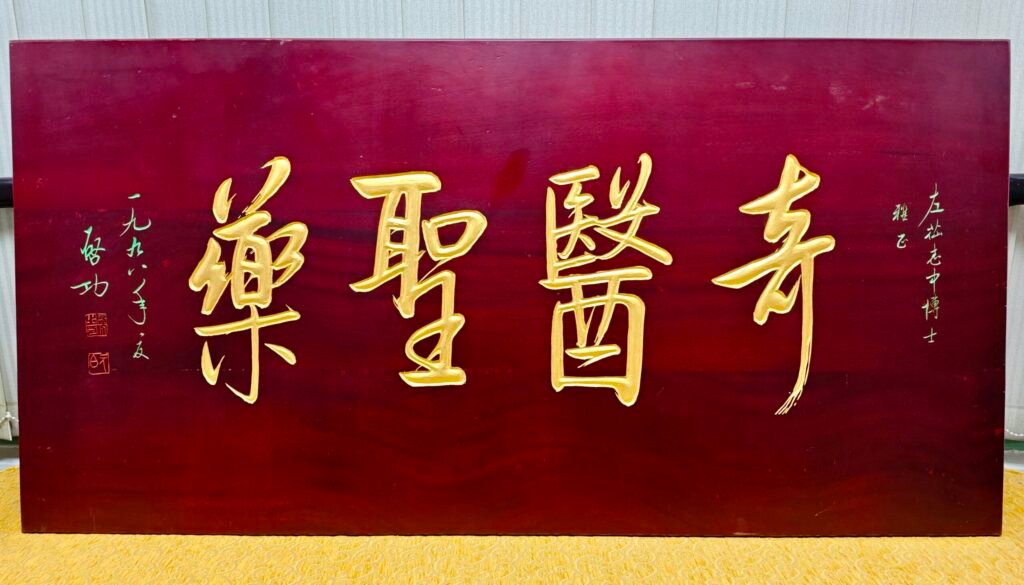 左松志中博士
雅正
奇醫聖藥
一九九八年夏
啓功